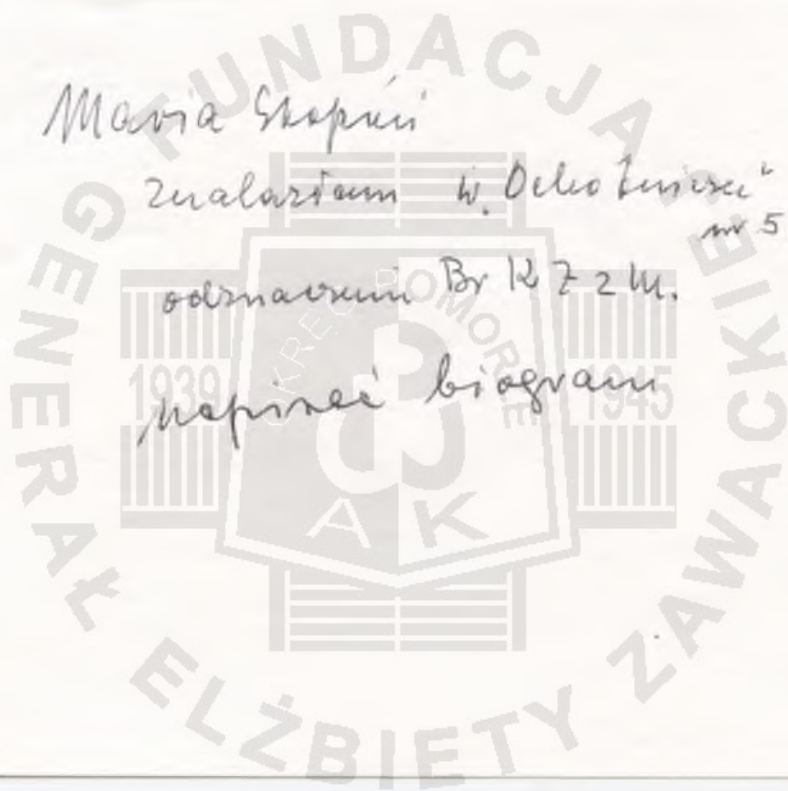 Maria Skopiń
znalazłam w "Ochotniczce"
nr 5
odznaczeni Br K Z z M.
napisać biogram
FUNDACJA GENERAŁ ELŻBIETY ZAWACKIEJ
OKRĘG POMORZE
1939 1945
A K